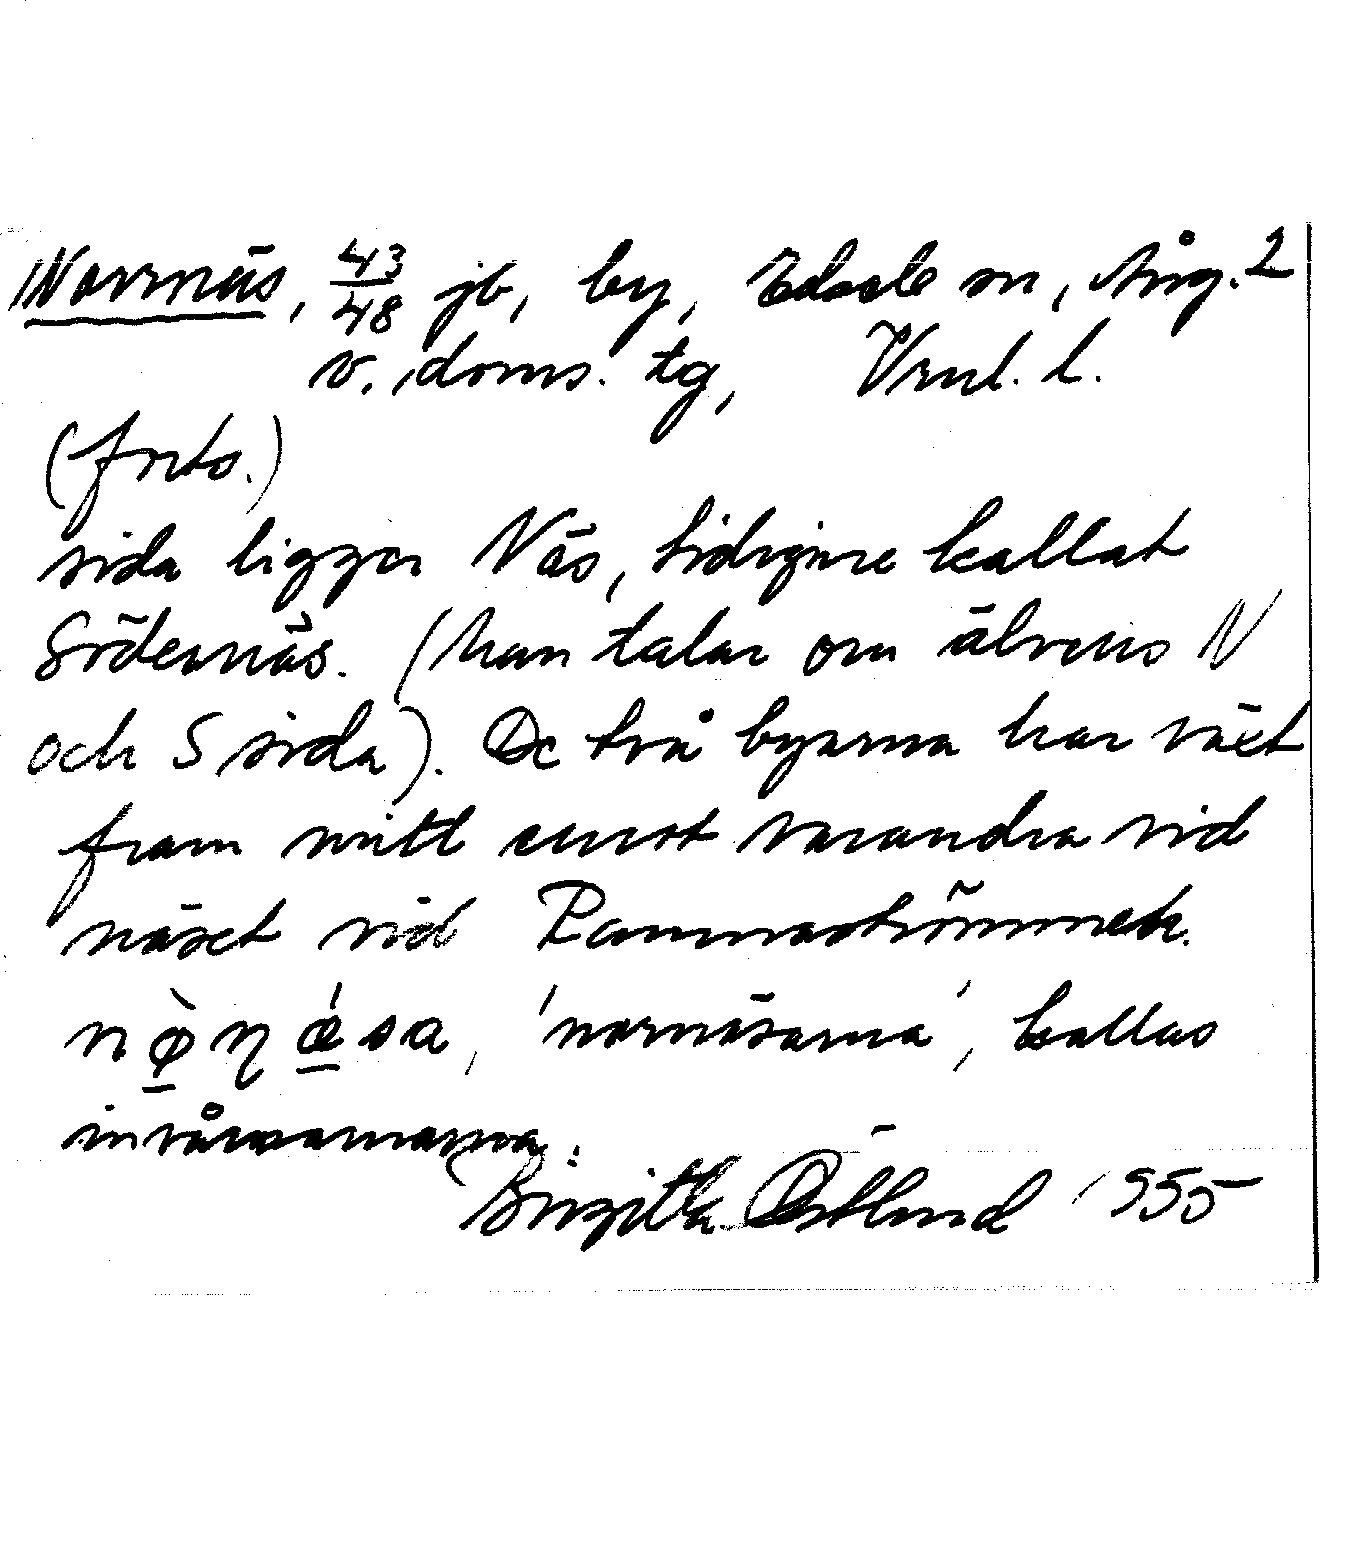 Norrnäs, 43/48 jb, by, Edsele sn, Ång. 2
v. doms. tg, Vnl. l.
(forts.)
sida ligger Näs, tidigare kallat
Södernäs. (Man talar om älvens N
och S sida). De två byarna har växt
fram mitt emot varandra vid
näset vid Ramnaströmmen.
'norrnäsarna', kallas
invånarna.
Birgitta Östlund 1955